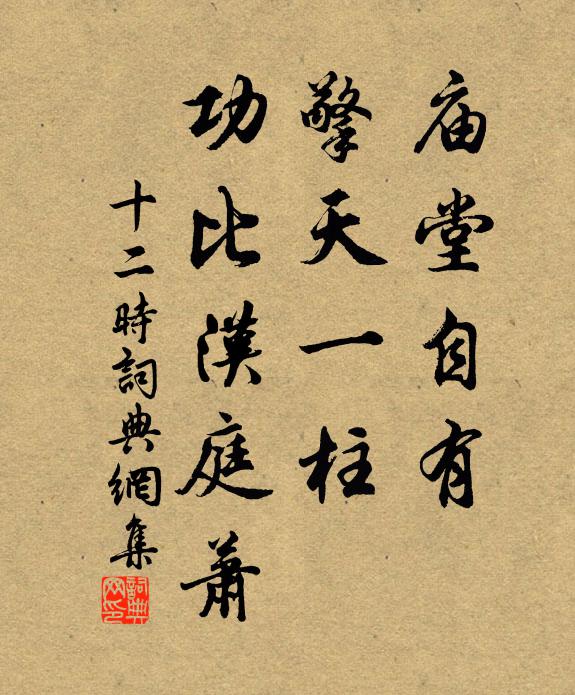 庙堂自有
擎天一柱
功比漢庭蕭
十二時詞典網集
詞典
网印